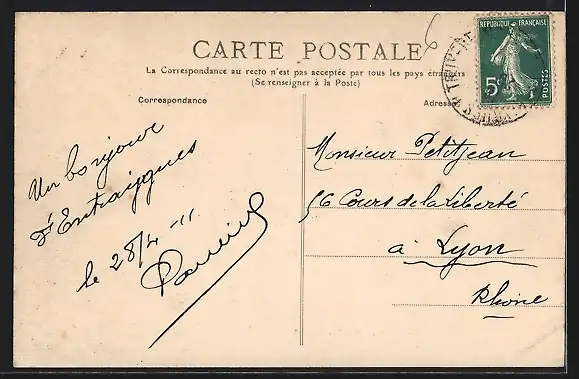 CARTE POSTALE
La Correspondance au recto n'est pas acceptée par tous les pays étrangers
(Se renseigner à la Poste)
Correspondance
Adresse
REPUBLIQUE FRANÇAISE
5c
POSTES
Un bonjour
d'Entraygues
le 28/4 -11
Monsieur Petitjean
56 Cours de la Liberté
à Lyon
Rhône
6